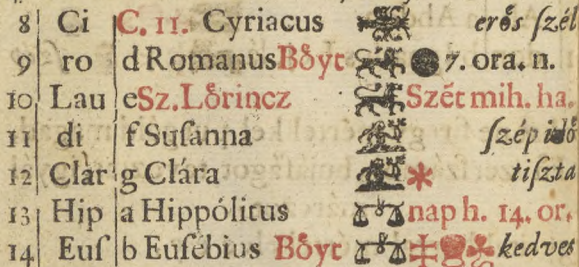 8 Ci C. 11. Cyriacus erős ſzél
9 ro d Romanus Bőyt 7. ora. n.
10 Lau e Sz. Lőrincz Szēt mih. ha.
11 di f Suſanna ſzép idő
12 Clar g Clára tiſzta
13 Hip a Hippólitus nap h. 14. or.
14 Euſ b Euſébius Bőyt kedves